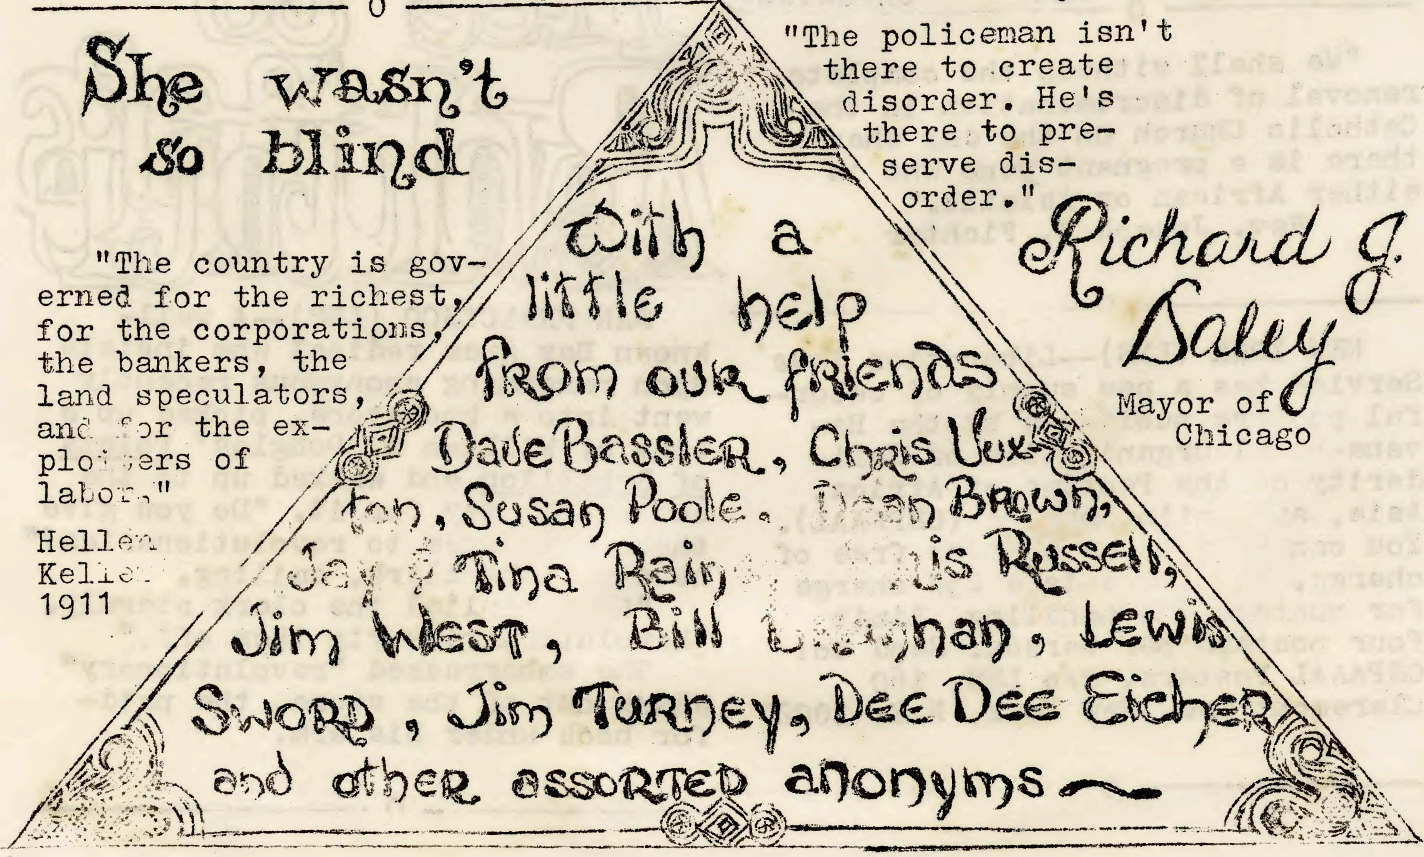 She wasn't
so blind
"The country is gov-
erned for the richest,
for the corporations,
the bankers, the
land speculators,
and for the ex-
ploiters of
labor."
Hellen
Keller
1911
"The policeman isn't
there to create
disorder. He's
there to pre-
serve dis-
order."
Richard J.
Daley
Mayor of
Chicago
With a
little help
from our friends
Dave Bassler, Chris Vux-
ton, Susan Poole, Brown,
Jay & Tina Russell,
Jim West, Bill Lewis
Sword, Jim Turney, Dee Dee Eicher
and other assorted anonyms